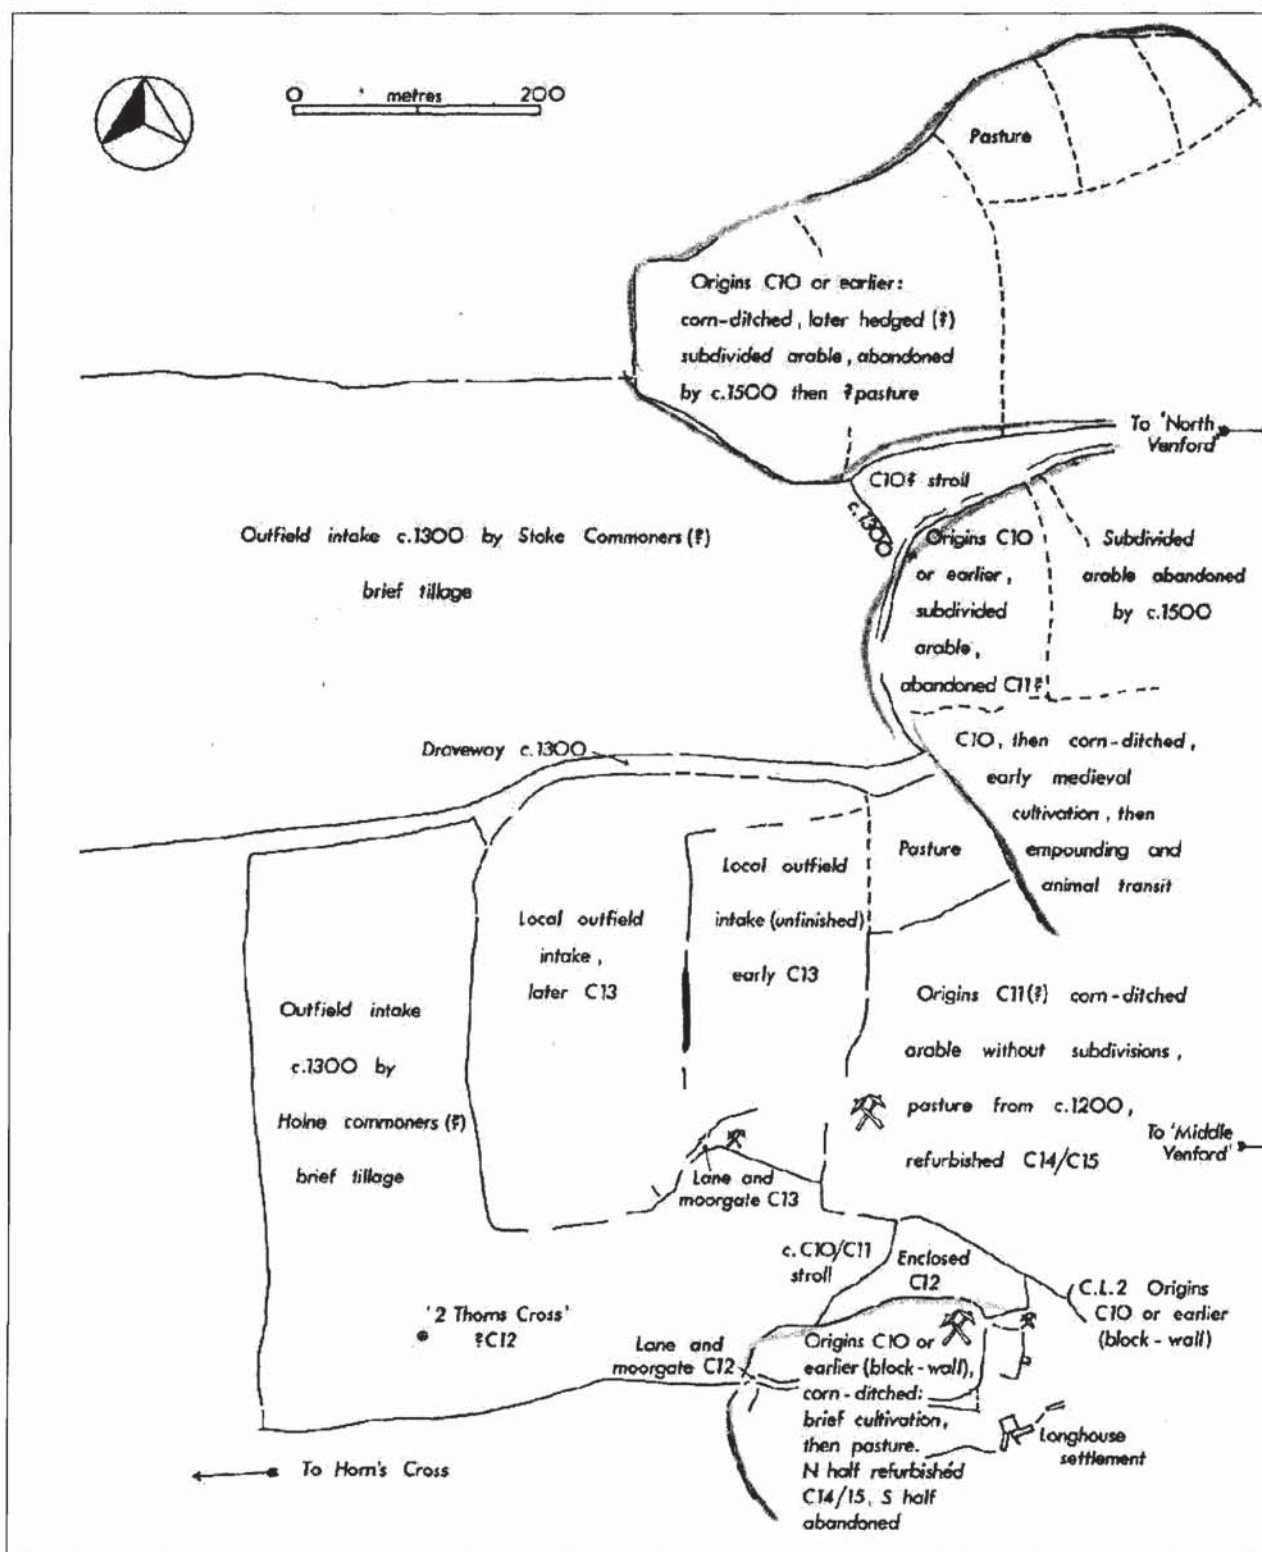 0 metres 200
Pasture
Origins C10 or earlier:
corn-ditched, later hedged (?)
subdivided arable, abandoned
by c.1500 then ?pasture
To 'North
Venford'
C10? stroll
c.1300
Outfield intake c.1300 by Stoke Commoners (?)
brief tillage
Origins C10
or earlier,
subdivided
arable,
abandoned C11?
Subdivided
arable abandoned
by c.1500
Draveway c.1300
C10, then corn-ditched,
early medieval
cultivation, then
empounding and
animal transit
Pasture
Local outfield
intake (unfinished)
early C13
Local outfield
intake,
later C13
Outfield intake
c.1300 by
Holne commoners (?)
brief tillage
Origins C11(?) corn-ditched
arable without subdivisions,
pasture from c.1200,
refurbished C14/C15
To 'Middle
Venford'
Lane and
moorgate C13
c. C10/C11
stroll
Enclosed
C12
C.L.2 Origins
C10 or earlier
(block-wall)
'2 Thorns Cross'
?C12
Lane and
moorgate C12
Origins C10 or
earlier (block-wall),
corn-ditched:
brief cultivation,
then pasture.
N half refurbished
C14/15, S half
abandoned
Longhouse
settlement
To Horn's Cross